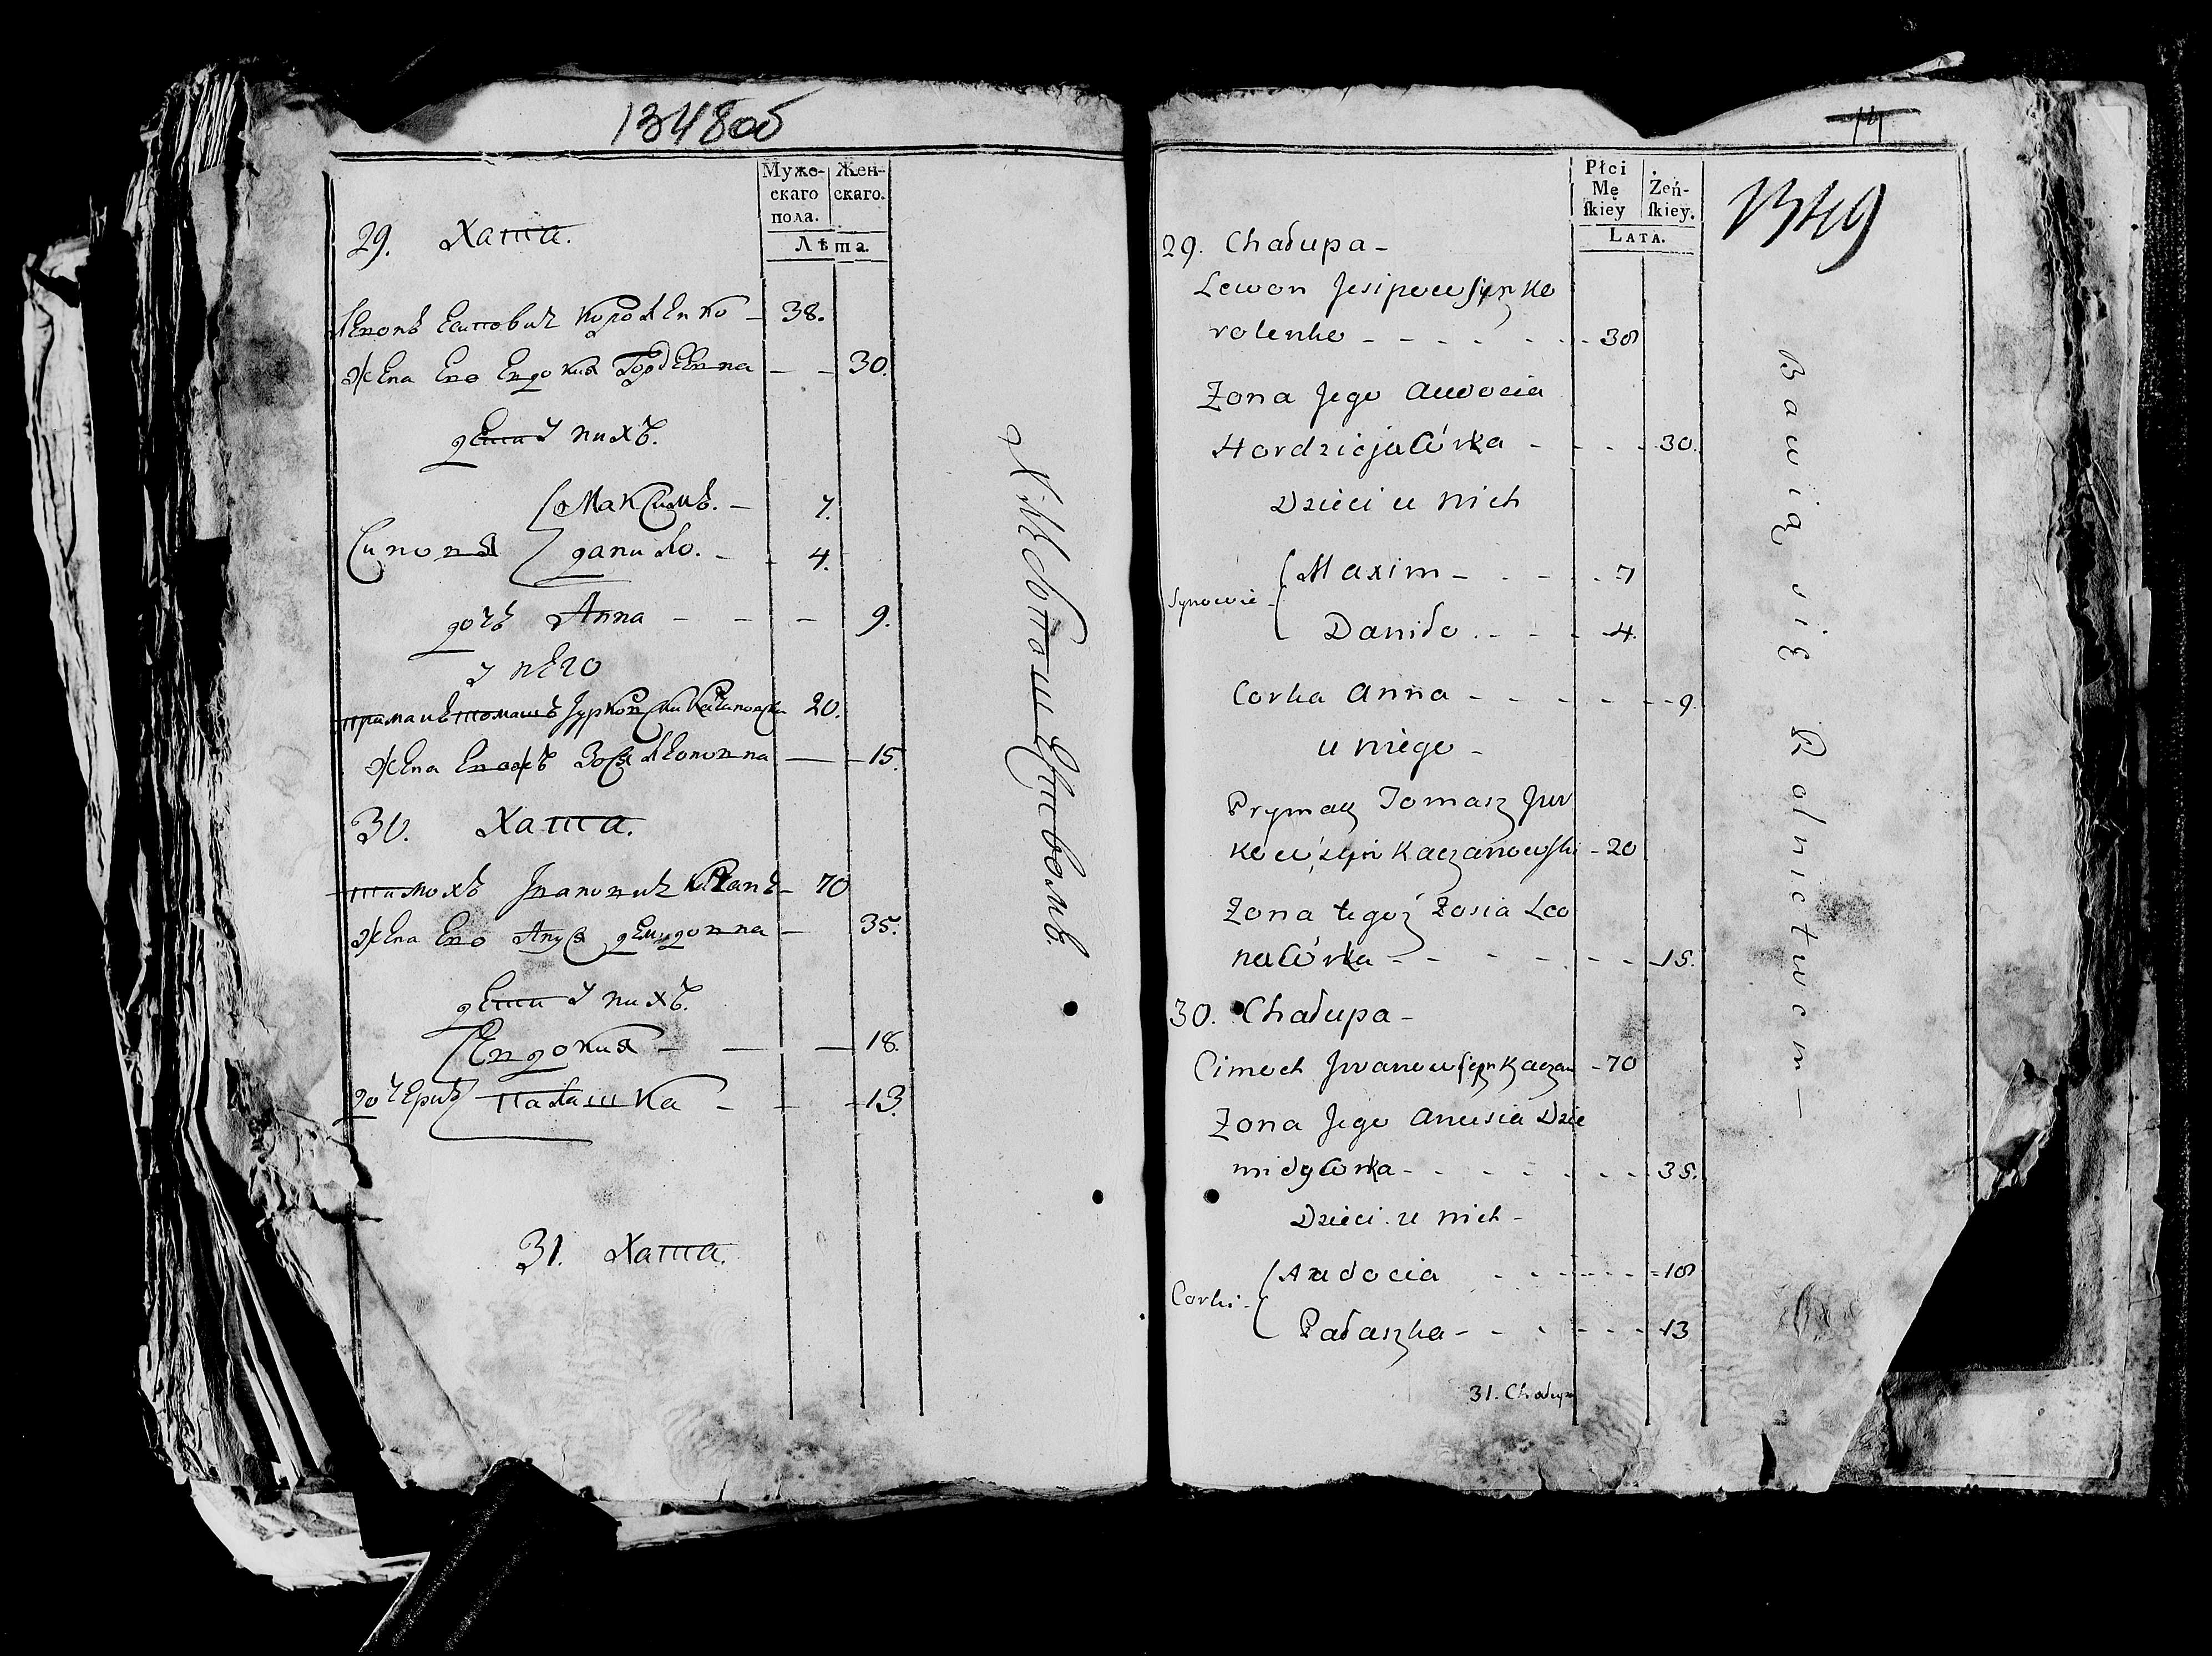 1348об
Муже-
скаго
пола.
Жен-
скаго.
Лѣта.
29. Хата.
Левонъ Есиповичъ Короленко - 38.
Жена Ево Евдокия Гордеевна - - 30.
дети У нихъ.
Максимъ. - 7.
Синовя
данило. - 4.
дочъ Анна - - - 9.
У него
примацъ томашъ Юрковски Качановски 20.
Жена Евожъ Зося Леоновна - - 15.
30. Хата.
тимохъ Ивановичъ Качанъ - 70
Жена Ево Ануся демидовна - 35.
дети У нихъ.
Евдокия - - - 18.
дочери
Палашка - - - 13.
31. Хата.
Хлебопашествомъ.
14
1349
Płci
Mę
ſkiey
Żeń-
ſkiey.
LATA.
29. Chałupa -
Lewon Jesipow syn Ko
rolenko - - - - - - 38
Zona Jego Awdocia
Hordziejacórka - - - - 30.
Dzieci u nich
Maxim - - - - 7
Synowie -
Daniło. - - - 4.
Corka Anna - - - - - - 9.
u niego -
Prymacz Tomasz Jur
kow syn Kaczanowski - 20
Zona tegoż Zosia Leo
naCórka - - - - - - - 15.
30. Chałupa -
Cimoch Jwanow syn Kaczan - 70
Zona Jego Anusia Dzie
midyCórka - - - - - - - 35.
Dzieci u nich -
Audocia - - - - - - 18
Corki -
Pałaszka - - - - - - 13
31. Chałupa
Bawią się Rolnictwem -